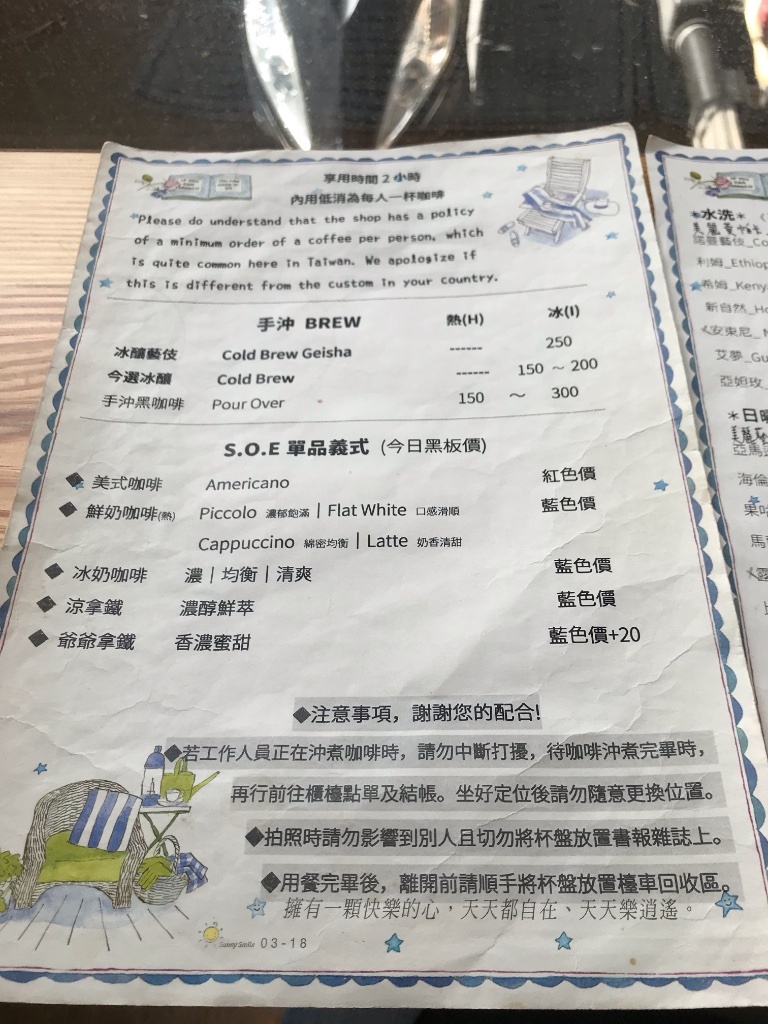 享用時間 2 小時
內用低消為每人一杯咖啡
Please do understand that the shop has a policy
of a minimum order of a coffee per person, which
is quite common here in Taiwan. We apologize if
this is different from the custom in your country.
手沖 BREW 熱(H) 冰(I)
冰釀藝伎 Cold Brew Geisha ------ 250
今選冰釀 Cold Brew ------ 150 ~ 200
手沖黑咖啡 Pour Over 150 ~ 300
S.O.E 單品義式 (今日黑板價)
◆ 美式咖啡 Americano 紅色價
◆ 鮮奶咖啡(熱) Piccolo 濃郁飽滿 | Flat White 口感滑順 藍色價
Cappuccino 綿密均衡 | Latte 奶香清甜
◆ 冰奶咖啡 濃 | 均衡 | 清爽 藍色價
◆ 涼拿鐵 濃醇鮮萃 藍色價
◆ 爺爺拿鐵 香濃蜜甜 藍色價+20
◆注意事項，謝謝您的配合!
◆若工作人員正在沖煮咖啡時，請勿中斷打擾，待咖啡沖煮完畢時，
再行前往櫃檯點單及結帳。坐好定位後請勿隨意更換位置。
◆拍照時請勿影響到別人且切勿將杯盤放置書報雜誌上。
◆用餐完畢後，離開前請順手將杯盤放置檯車回收區。
擁有一顆快樂的心，天天都自在、天天樂逍遙。
Sunny Smile 03-18
*水洗*
諾曼藝伎_Co
利姆_Ethiop
希姆_Keny
新自然_Ho
安東尼_
艾夢_Gu
亞妲玫_
*日曬
亞馬
海倫
果
馬